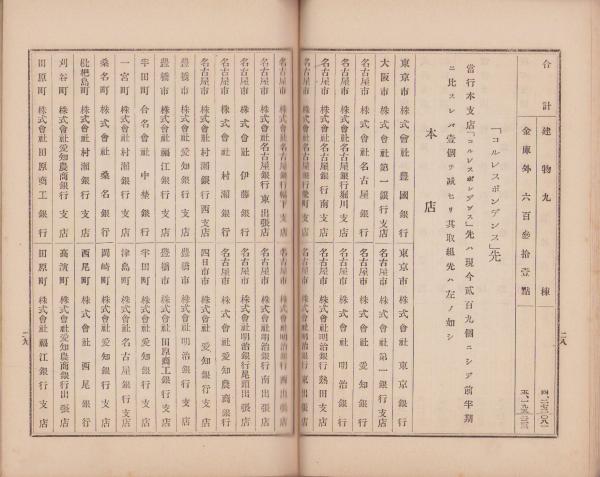 合計
建物九棟
金庫外六百参拾壹點
「コルレスポンデンス」先
當行本支店「コルレスポンデンス」先ハ現今貳百九個ニシテ前半期
ニ比スレバ壹個ヲ減セリ其取組先ハ左ノ如シ
本店
東京市 株式會社豊國銀行 東京市 株式會社東京銀行
大阪市 株式會社第一銀行支店 名古屋市 株式會社第一銀行支店
名古屋市 株式會社名古屋銀行 名古屋市 株式會社愛知銀行
名古屋市 株式會社名古屋銀行堀川支店 名古屋市 株式會社明治銀行
名古屋市 株式會社名古屋銀行南支店 名古屋市 株式會社明治銀行熱田支店
名古屋市 株式會社名古屋銀行 名古屋市 株式會社明治銀行東出張店
二八
名古屋市 株式會社名古屋銀行 名古屋市 株式會社明治銀行西出張店
名古屋市 株式會社名古屋銀行東出張店 名古屋市 株式會社明治銀行南出張店
名古屋市 株式會社伊藤銀行 名古屋市 株式會社明治銀行尾頭出張店
名古屋市 株式會社村瀬銀行 名古屋市 株式會社愛知農商銀行
名古屋市 株式會社村瀬銀行西支店 四日市市 株式會社愛知銀行支店
豊橋市 株式會社愛知銀行支店 豊橋市 株式會社明治銀行支店
豊橋市 株式會社福江銀行支店 豊橋市 株式會社田原商工銀行支店
半田町 合名會社中埜銀行 半田町 株式會社愛知銀行支店
一宮町 株式會社村瀬銀行支店 津島町 株式會社名古屋銀行支店
桑名町 株式會社桑名銀行 岡崎町 株式會社愛知銀行支店
枇杷島町 株式會社村瀬銀行支店 西尾町 株式會社西尾銀行
刈谷町 株式會社愛知農商銀行支店 高濱町 株式會社愛知農商銀行出張店
田原町 株式會社田原商工銀行 田原町 株式會社福江銀行支店
二九